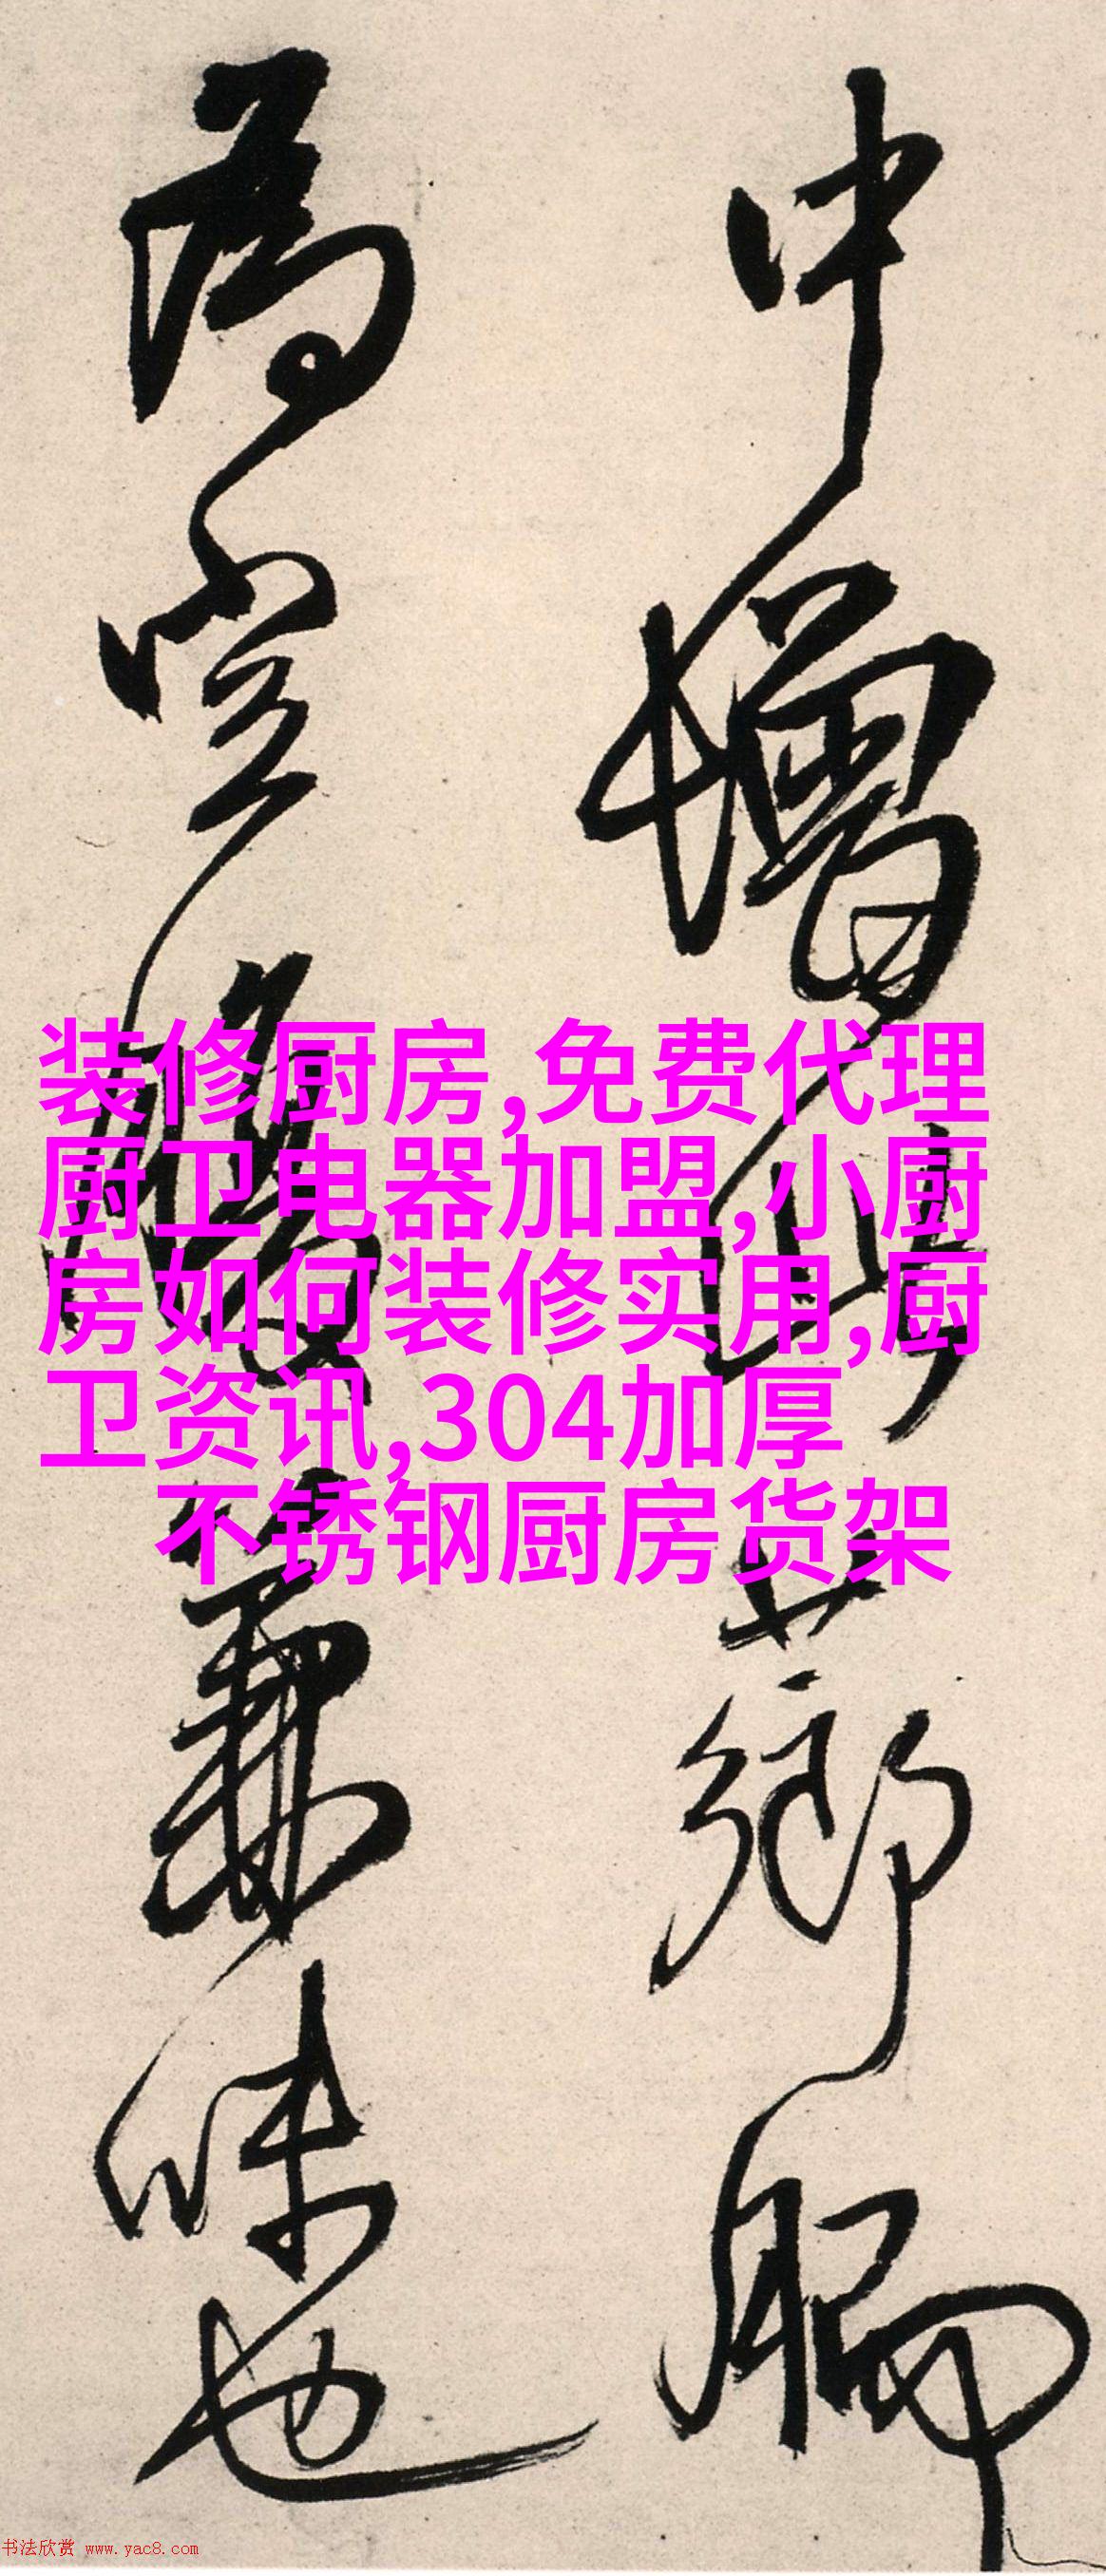 中增此芗
为登 兼味也
装修厨房,免费代理
厨卫电器加盟,小厨
房如何装修实用,厨
卫资讯,304加厚
不锈钢厨房货架
书法欣赏 www.yac8.com